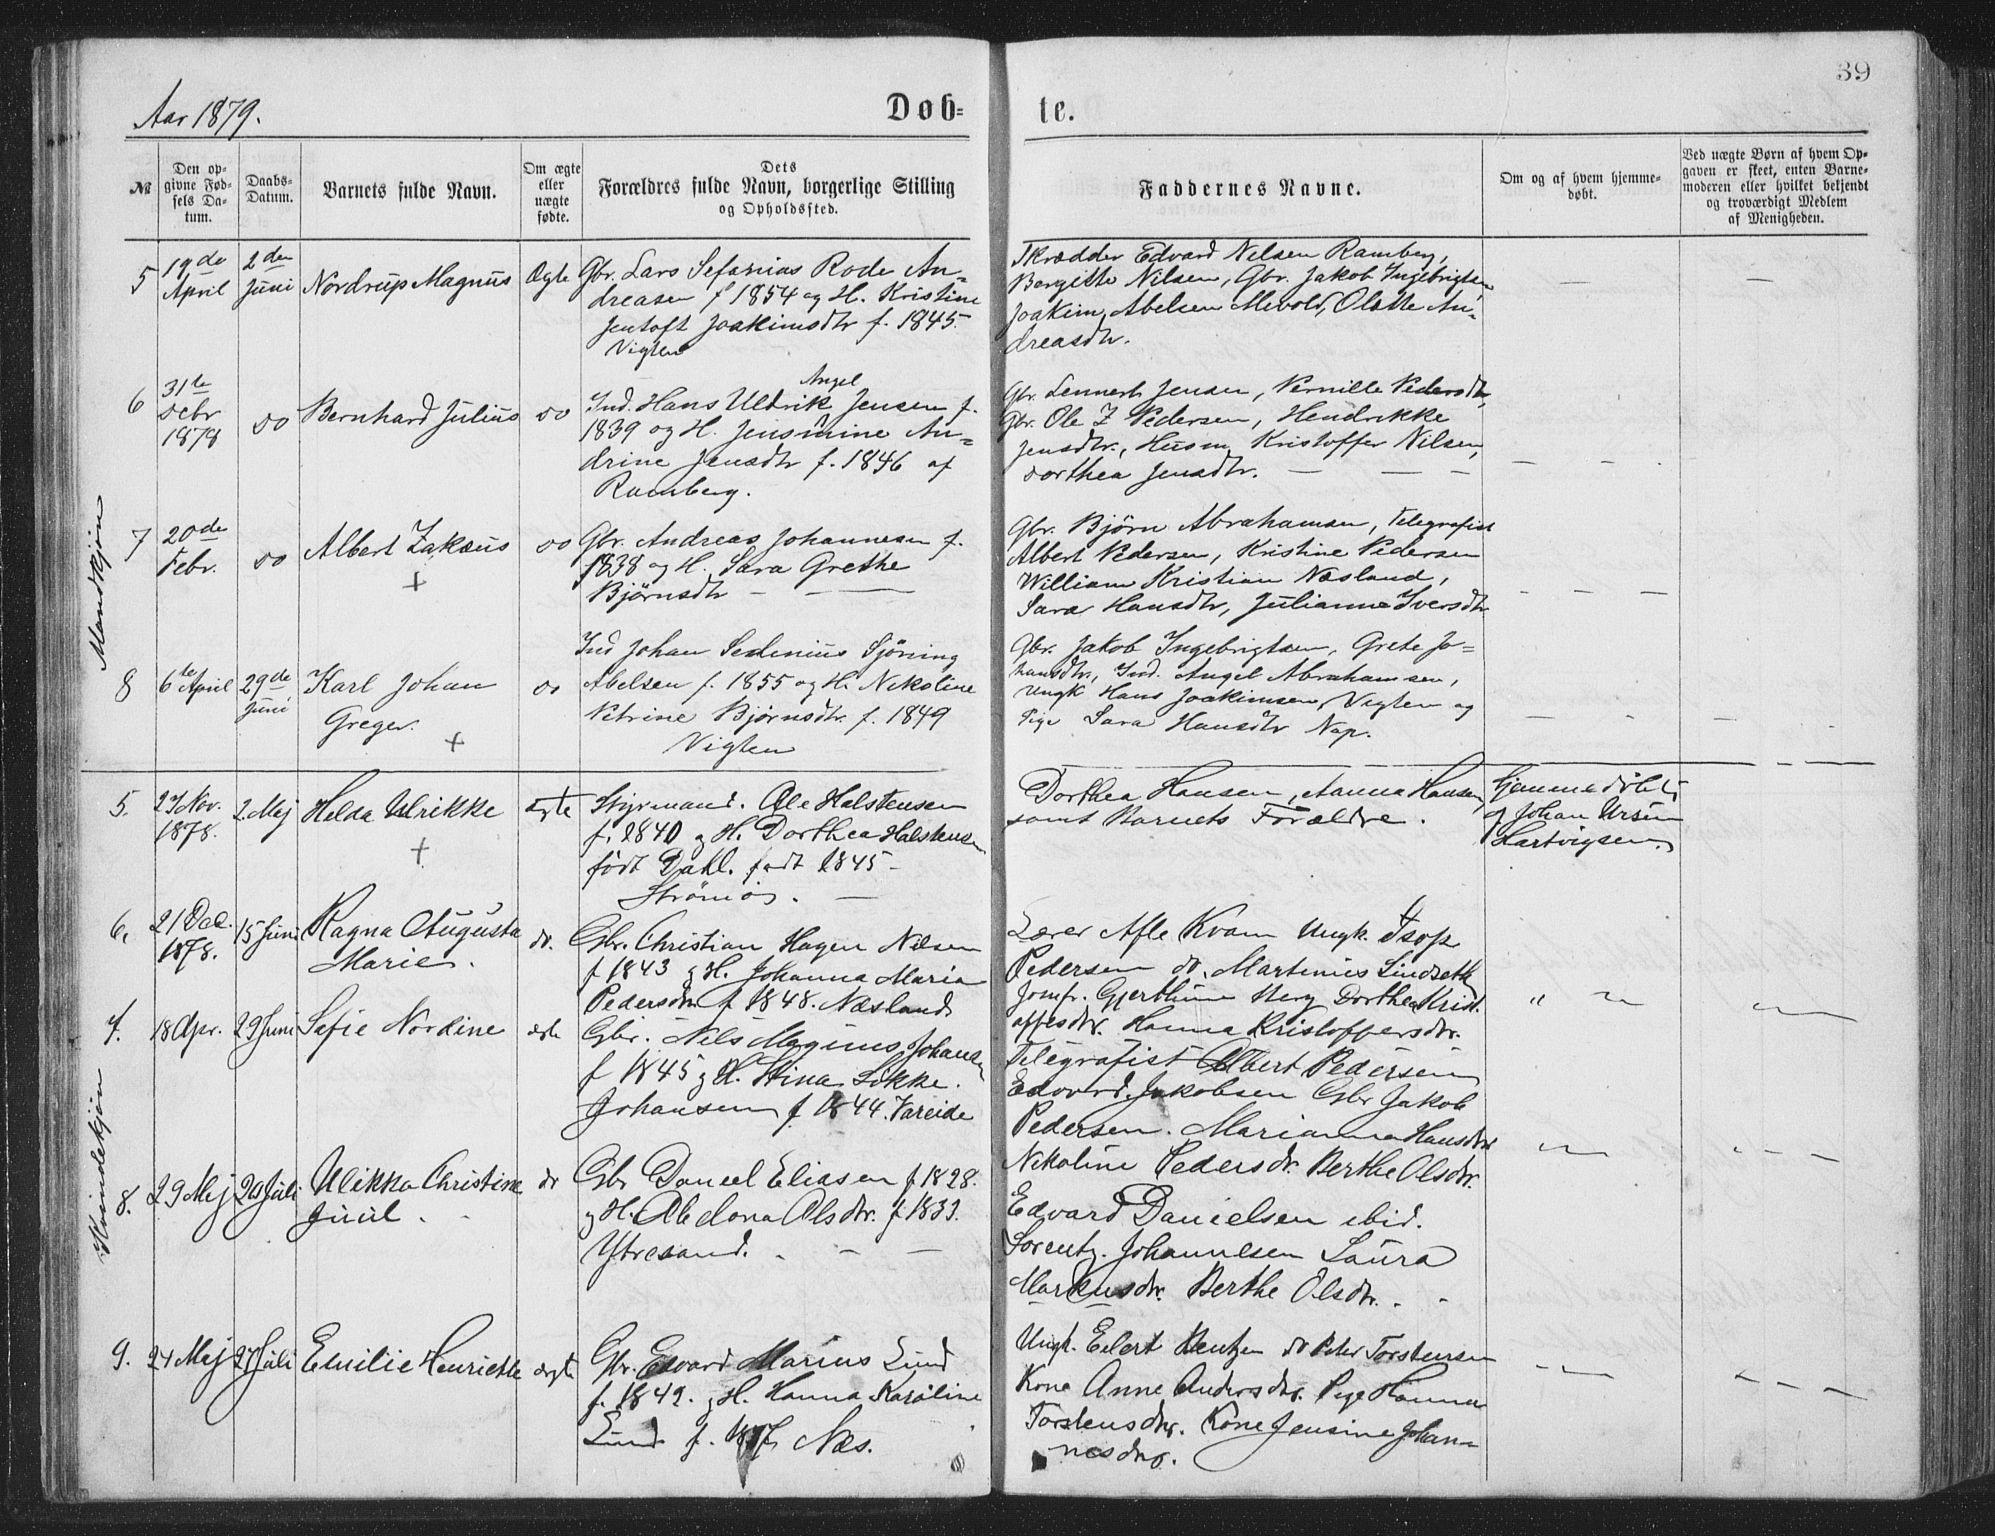 39
Aar 1879.
Døb=
te.
№
Den op-
givne Fød-
sels Da-
tum.
Daabs-
Datum.
Barnets fulde Navn.
Om ægte
eller
uægte
fødte.
Dets
Forældres fulde Navn, borgerlige Stilling
og Opholdssted.
Faddernes Navne.
Om og af hvem hjemme-
døbt.
Ved uægte Børn af hvem Op-
gaven er skeet, enten Barne-
moderen eller hvilket bekjendt
og troværdigt Medlem
af Menigheden.
Mandkjøn
5
19de
April
2den
Juni
Nordrup Magnus
Ægte
Gbr. Lars Sefanias Rode An-
dreasen f 1854 og H. Kristine
Jentoft Joakimsdtr f. 1845.
Vigten
Skrædder Edvard Nilsen Ramberg,
Bergitte Nilsen, Gbr. Jakob Ingebrigtsen
Joakim Abelsen Mevold, Olette An-
dreasdtr.
6
31te
Decbr
1878
do
Bernhard Julius
do
Angel
Ind. Hans Uldrik Jensen f.
1839 og H. Jensmine An-
drine Jensdtr f. 1846 af
Ramberg.
Gbr. Lennert Jensen, Pernille Pedersdtr,
Gbr. Ole Z Pedersen, Hendrikke
Jensdtr., Husm. Kristoffer Nilsen,
Dorthea Jensdtr.
7
20de
Febr.
do
Albert Zakæus
+
do
Gbr. Andreas Johannesen f.
1838 og H. Sara Grethe
Bjørnsdtr
Gbr. Bjørn Abrahamsen, Telegrafist
Albert Pedersen, Kristine Pedersen
William Kristian Næsland,
Sara Hansdtr, Julianna Iversdtr
8
6te April
29de
Juni
Karl Johan
Greger.
+
do
Ind Johan Sedenius Sjöning
Abelsen f. 1855 og H. Nikoline
Petrine Bjørnsdtr. f. 1849
Vigten
Gbr. Jakob Ingebrigtsen, Grete Jo=
hansdtr., Ind. Angel Abrahamsen,
Ungk Hans Joakimsen, Vigten og
Pige Sara Hansdtr Nap.
Kvindekjøn
5.
27 Nov.
1878.
2 Maj
Helda Ulrikke
+
ægte
Styrmand. Ole Halstensen
f. 1840 og H. Dorthea Halstensen
født Dahl. født 1845 -
Strömö.
Dorthea Hansen, Anna Hansen
samt Barnets Forældre.
Hjemmedöbt
af Johan Ursin
Hartvigsen.
6.
21 Dec.
1878.
15 Juni
Ragna Augusta
Marie.
do.
Gbr. Christian Hagen Nilsen
f 1843 og H. Johanna Maria
Pedersdtr f 1848. Næsland
Lærer Afle Kvam Ungk. Isop
Pedersen do. Martinus Lindseth
Jomfr. Gjerthine Berg Dorthea Krist-
offesdtr. Hanna Kristoffersdtr.
7.
18 Apr.
29 Juni
Sofie Nordine
ægte
Gbr. Nels Magnus Johansen
f 1845 og H. Stina Lökke.
Johansen f 1844. Vareide
Telegrafist Albert Pedersen
Edvard Jakobsen Gbr Jakob
Pedersen. Marianna Hansdtr
Nikoline Pedersdtr. Berthe Olsdtr.
8.
29 Mej
20 Juli
Ulikka Christine
Juul.
do
Gbr Daneel Eliasen f 1828.
og H. Abelona Olsdtr. f 1833.
Ytresand.
Edvard Danielsen ibid.
Lorentz. Johannesen Laura
Markusdtr. Berthe Olsdtr.
9.
24 Mej
27 Juli
Emilie Henriette
ægte
Gbr. Edvard Marius Lund
f. 1842. og H. Hanna Karoline
Lund f. Næs.
Ungk. Eilert Rentzen do Peter Torstensen
Kone Anne Andersdtr. Pige Hanna
Torstensdtr. Kone Jensine Johan-
nesdtr.